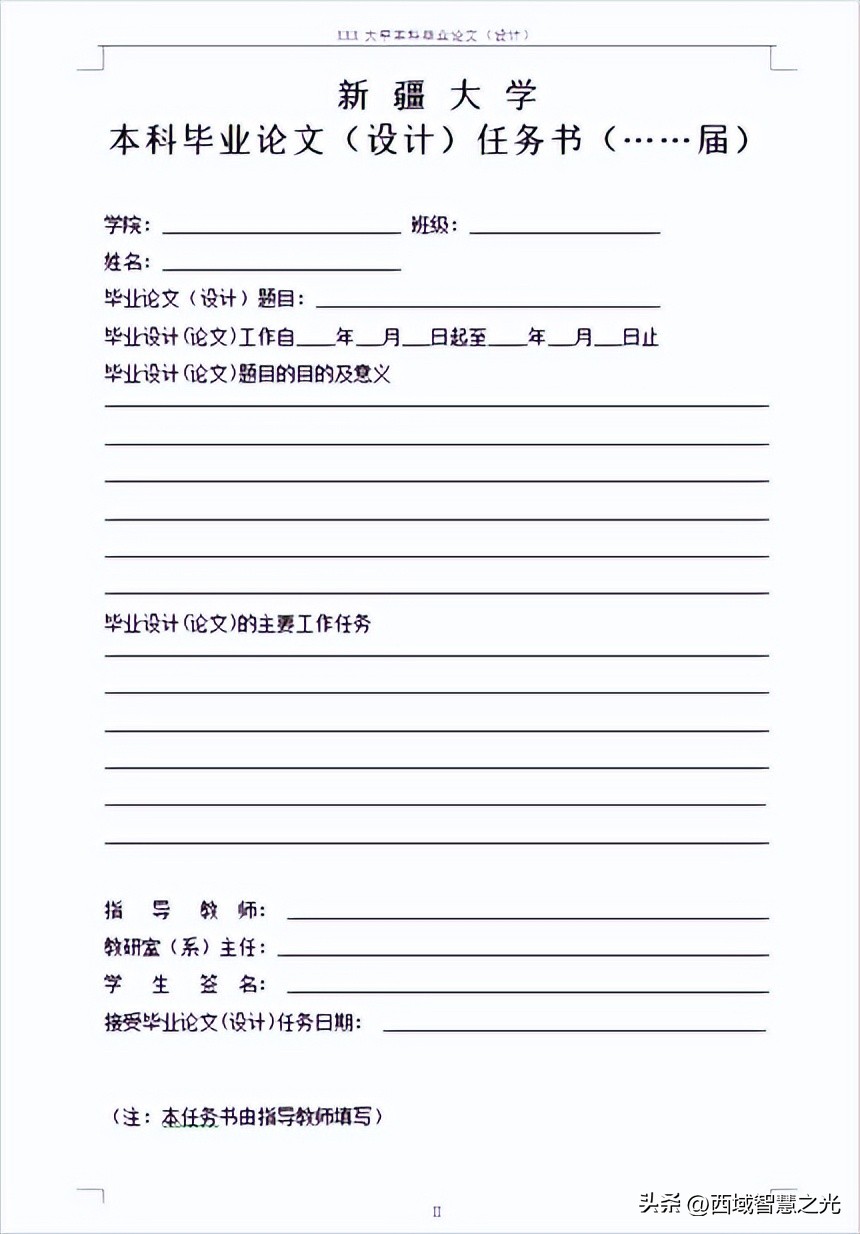 XXX 大学本科毕业论文（设计）
新 疆 大 学
本科毕业论文（设计）任务书（……届）
学院：____ 班级：____
姓名：____
毕业论文（设计）题目：____
毕业设计(论文)工作自____年___月___日起至____年___月___日止
毕业设计(论文)题目的目的及意义
毕业设计(论文)的主要工作任务
指 导 教 师：____
教研室（系）主任：____
学 生 签 名：____
接受毕业论文(设计)任务日期：____
（注：本任务书由指导教师填写）
II
头条 @西域智慧之光